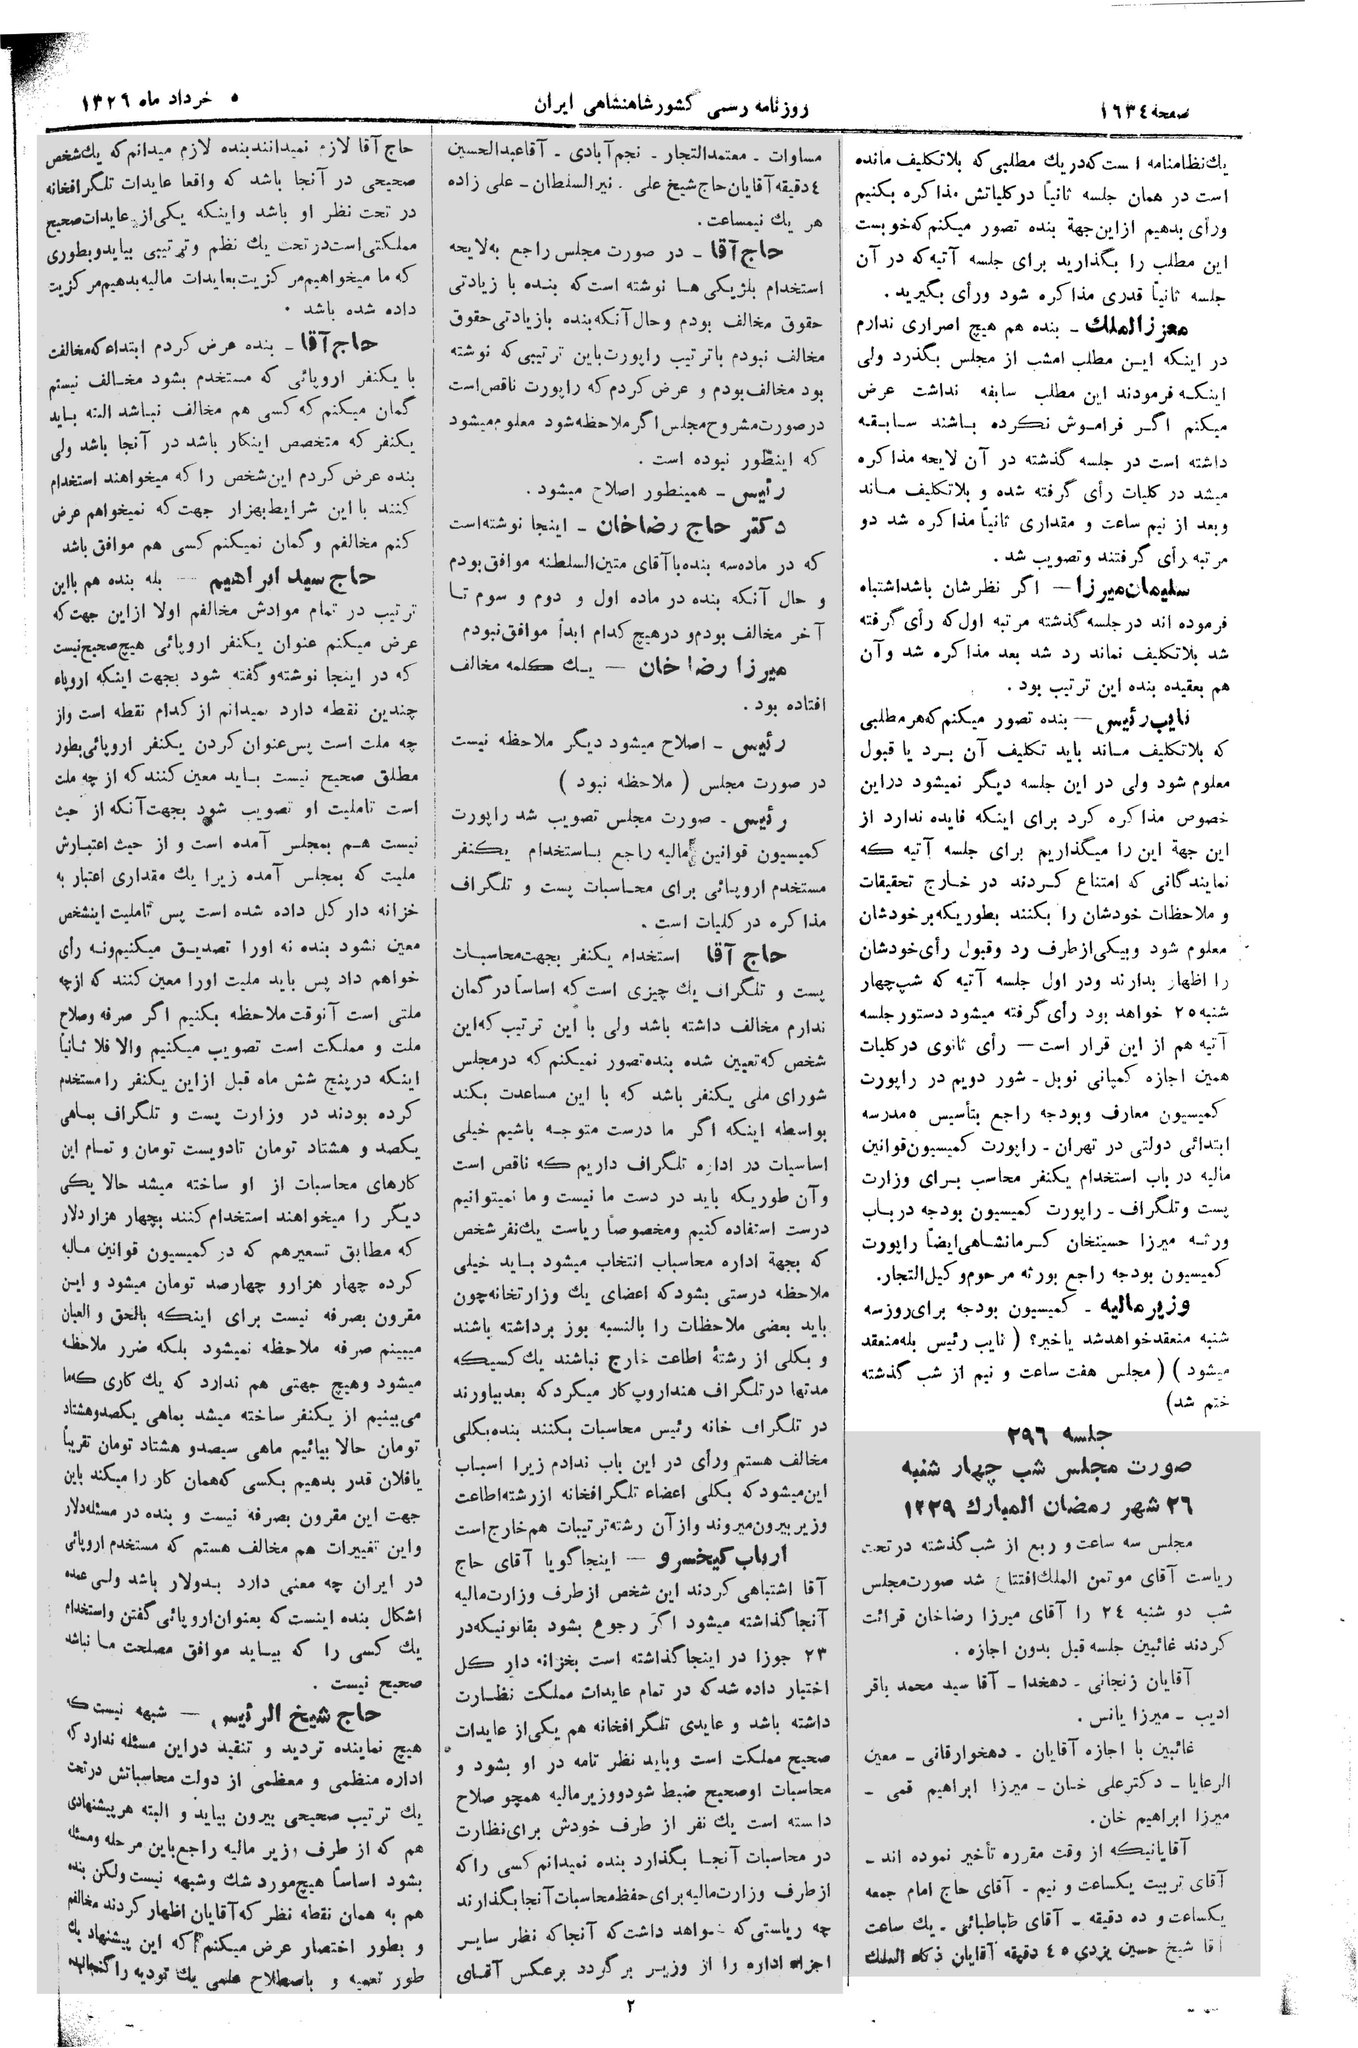 صفحه ١٦٣٤
روزنامه رسمی کشور شاهنشاهی ایران
٥ خرداد ماه ١٣٢٩
یك نظامنامه است که در یك مطلبی که بلاتکلیف مانده
است در همان جلسه ثانیاً در کلیاتش مذاکره بکنیم
ورأی بدهیم از این جهة بنده تصور میکنم که خوبست
این مطلب را بگذارید برای جلسه آتیه که در آن
جلسه ثانیاً قدری مذاکره شود ورأی بگیرید.
معززالملك ـ بنده هم هیچ اصراری ندارم
در اینکه ایـن مطلب امشب از مجلس بگذرد ولی
اینکـه فرمودند این مطلب سابقه نداشت عرض
میکنم اگـر فراموش نکرده بـاشند سـابـقـه
داشته است در جلسه گذشته در آن لایحه مذاکره
میشد در کلیات رأی گرفته شده و بلاتکلیف مـاند
وبعد از نیم ساعت و مقداری ثانیاً مذاکره شد دو
مرتبه رأی گرفتند وتصویب شد.
سلیمان میرزا ـ اگر نظرشان باشد اشتباه
فرموده اند در جلسه گذشته مرتبه اول که رأی گرفته
شد بلاتکلیف نماند رد شد بعد مذاکره شد وآن
هم بعقیده بنده این ترتیب بود.
نایب رئیس ـ بنده تصور میکنم که هر مطلبی
که بلاتکلیف مـاند باید تکلیف آن برد یا قبول
معلوم شود ولی در این جلسه دیگر نمیشود در این
خصوص مذاکره کرد برای اینکه فایده ندارد از
این جهة این را میگذاریم برای جلسه آتیه که
نمایندگانی که امتناع کـردند در خارج تحقیقات
و ملاحظات خودشان را بکنند بطوریکه بر خودشان
معلوم شود وبیکی از طرف رد وقبول رأی خودشان
را اظهار بدارند ودر اول جلسه آتیه که شب چهار
شنبه ٢٥ خواهد بود رأی گرفته میشود دستور جلسه
آتیه هم از این قرار است ـ رأی ثانوی در کلیات
همین اجازه کمپانی نوبل ـ شور دویم در راپورت
کمیسیون معارف وبودجه راجع بتأسیس ٥ مدرسه
ابتدائی دولتی در تهران ـ راپورت کمیسیون قوانین
مالیه در باب استخدام یکنفر محاسب بـرای وزارت
پست وتلگراف ـ راپورت کمیسیون بودجه در بـاب
ورثـه میرزا حسینخان کـرمانشاهی ایضاً راپورت
کمیسیون بودجه راجع بورثه مرحوم وکیل التجار.
وزیر مالیه ـ کمیسیون بودجه برای روز سه
شنبه منعقد خواهد شد یا خیر؟ ( نایب رئیس بله منعقد
میشود ) ( مجلس هفت ساعت و نیم از شب گذشته
ختم شد)
جلسه ٢٩٦
صورت مجلس شب چهار شنبه
٢٦ شهر رمضان المبارك ١٣٢٩
مجلس سه ساعت و ربع از شب گذشته در تحت
ریاست آقای موتمن الملك افتتاح شد صورت مجلس
شب دو شنبه ٢٤ را آقای میرزا رضاخان قرائت
کردند غائبین جلسه قبل بدون اجازه.
آقایان زنجانی ـ دهخدا ـ آقا سید محمد باقر
ادیب ـ میرزا یانس.
غائبین با اجازه آقایان ـ دهخوارقانی ـ معین
الرعایا ـ دکتر علی خـان ـ میرزا ابراهیم قمی ـ
میرزا ابراهیم خان.
آقایانیکه از وقت مقرره تأخیر نموده اند ـ
آقای تربیت یکساعت و نیم ـ آقای حاج امام جمعه
یکساعت و ده دقیقه ـ آقای طباطبائی ـ یك ساعت
آقا شیخ حسین یزدی ٤٥ دقیقه آقایان ذکاء الملك
مساوات ـ معتمدالتجار ـ نجم آبادی ـ آقا عبدالحسین
٤ دقیقه آقایان حاج شیخ علی. نیرالسلطان ـ علی زاده
هر یك نیمساعت.
حاج آقا ـ در صورت مجلس راجع به لایحه
استخدام بلژیکی هـا نوشته است که بنده با زیادتی
حقوق مخالف بودم و حال آنکه بنده با زیادتی حقوق
مخالف نبودم با ترتیب راپورت باین ترتیبی که نوشته
بود مخالف بودم و عرض کردم که راپورت ناقص است
در صورت مشروح مجلس اگر ملاحظه شود معلوم میشود
که اینطور نبوده است.
رئیس ـ همینطور اصلاح میشود.
دکتر حاج رضاخان ـ اینجا نوشته است
که در ماده سه بنده با آقای متین السلطنه موافق بودم
و حال آنکه بنده در ماده اول و دوم و سوم تـا
آخر مخالف بودم و در هیچ کدام ابداً موافق نبودم
میرزا رضا خان ـ یـك کلمه مخالف
افتاده بود.
رئیس ـ اصلاح میشود دیگر ملاحظه نیست
در صورت مجلس ( ملاحظه نبود )
رئیس ـ صورت مجلس تصویب شد راپورت
کمیسیون قوانین مالیه راجع بـاستخدام یکنفر
مستخدم اروپائی برای محـاسبات پست و تلگراف
مذاکره در کلیات است.
حاج آقا استخدام یکنفر بجهت محاسبـات
پست و تلگراف یك چیزی است که اساساً در گمان
ندارم مخالف داشته باشد ولی با این ترتیب که این
شخص که تعیین شده بنده تصور نمیکنم که در مجلس
شورای ملی یکنفر باشد که با این مساعدت بکند
بواسطه اینکه اگر ما درست متوجه باشیم خیلی
اساسیات در اداره تلگراف داریم که ناقص است
وآن طوریکه باید در دست ما نیست و ما نمیتوانیم
درست استفاده کنیم ومخصوصاً ریاست یك نفر شخص
که بجهة اداره محاسبات انتخاب میشود بـاید خیلی
ملاحظه درستی بشود که اعضای یك وزارتخانه چون
باید بعضی ملاحظات را بالنسبه بوز برداشته باشند
و بکلی از رشتۀ اطاعت خارج نباشند یك کسیکه
مدتها در تلگراف هنداروپ کار میکرد که بعد بیاورند
در تلگراف خانه رئیس محاسبات بکنند بنده بکلی
مخالف هستم ورأی در این باب ندادم زیرا اسبـاب
این میشود که بکلی اعضاء تلگرافخانه از رشته اطاعت
وزیر بیرون میروند و از آن رشته ترتیبات هم خارج است
ارباب کیخسرو ـ اینجا گویا آقای حاج
آقا اشتباهی کردند این شخص از طرف وزارت مالیه
آنجا گذاشته میشود اگر رجوع بشود بقانونیکه در
٢٣ جوزا در اینجا گذاشته است بخزانه دار کـل
اختیار داده شد که در تمام عایدات مملکت نظـارت
داشته باشد و عایدی تلگرافخانه هم یکی از عایدات
صحیح مملکت است وباید نظر تامه در او بشود و
محاسبات او صحیح ضبط شود و وزیر مالیه همچو صلاح
دانسته است یك نفر از طرف خودش برای نظارت
در محاسبات آنجـا بگذارد بنده نمیدانم کسی را که
از طرف وزارت مالیه برای حفظ محاسبات آنجا بگذارند
چه ریاستی که خواهد داشت که آنجا که نظر سایـر
اجزاء اداره را از وزیـر برگردد برعکس آقـای
حاج آقا لازم نمیدانند بنده لازم میدانم که یك شخص
صحیحی در آنجا باشد که واقعا عایدات تلگرافخانه
در تحت نظر او باشد واینکه یکی از عایدات صحیح
مملکتی است در تحت یك نظم وترتیبی بیاید و بطوری
که ما میخواهیم مرکزیت بعایدات مالیه بدهیم مرکزیت
داده شده باشد.
حاج آقا ـ بنده عرض کردم ابتداء که مخالفت
با یکنفر اروپائی که مستخدم بشود مخـالف نیستم
گمان میکنم که کسی هم مخالف نباشد البته بـاید
یکنفر که متخصص اینکار باشد در آنجا باشد ولی
بنده عرض کردم این شخص را که میخواهند استخدام
کنند با این شرایط بهزار جهت که نمیخواهم عرض
کنم مخالفم و گمان نمیکنم کسی هم موافق باشد
حاج سید ابراهیم ـ بله بنده هم با این
ترتیب در تمام موادش مخالفم اولا از این جهت که
عرض میکنم عنوان یکنفر اروپائی هیچ صحیح نیست
که در اینجا نوشته و گفته شود بجهت اینکه اروپاء
چندین نقطه دارد نمیدانم از کدام نقطه است واز
چه ملت است پس عنوان کردن یکنفر اروپائی بطور
مطلق صحیح نیست بـاید معین کنند که از چه ملت
است تا ملیت او تصویب شود بجهت آنکه از حیث
نیست هـم بمجلس آمده است و از حیث اعتبـارش
ملیت که بمجلس آمده زیرا یك مقداری اعتبار به
خزانه دار کل داده شده است پس تا ملیت اینشخص
معین نشود بنده نه اورا تصدیـق میکنیم ونـه رأی
خواهم داد پس باید ملیت اورا معین کنند که از چه
ملتی است آنوقت ملاحظه بکنیم اگر صرفه وصلاح
ملت و مملکت است تصویب میکنیم والا فلا ثـانیاً
اینکه در پنج شش ماه قبل از این یکنفر را مستخدم
کرده بودند در وزارت پست و تلگراف بماهی
یکصد و هشتاد تومان تا دویست تومان و تمام این
کارهای محاسبات از او ساخته میشد حالا یکی
دیگر را میخواهند استخدام کنند بچهار هزار دلار
که مطابق تسعیرهم که در کمیسیون قوانین مـالیه
کرده چهار هزار و چهارصد تومان میشود و ایـن
مقرون بصرفه نیست برای اینکه بالحق و العیان
میبینم صرفه ملاحظه نمیشود بلکه ضرر ملاحظه
میشود وهیچ جهتی هم ندارد که یك کاری که ما
می بینیم از یکنفر ساخته میشد بماهی یکصد و هشتاد
تومان حالا بیائیم ماهی سیصد و هشتاد تومان تقریباً
یا فلان قدر بدهیم بکسی که همان کار را میکند باین
جهت این مقرون بصرفه نیست و بنده در مسئله دلار
واین تغییرات هم مخالف هستم که مستخدم اروپائی
در ایران چه معنی دارد بدولار باشد ولی عمده
اشکال بنده اینست که بعنوان اروپائی گفتن واستخدام
یك کسی را که بیـاید موافق مصلحت مـا نباشد
صحیح نیست.
حاج شیخ الرئیس ـ شبهه نیست که
هیچ نماینده تردید و تنقید در این مسئله ندارد که
اداره منظمی و معظمی از دولت محاسباتش در تحت
یك ترتیب صحیحی بیرون بیاید و البته هر پیشنهادی
هم که از طرف وزیر مالیه راجع باین مرحله ومسئله
بشود اساساً هیچ مورد شك وشبهه نیست ولکن بنده
هم به همان نقطه نظر که آقایان اظهار کردند مخالفم
و بطور اختصار عرض میکنم که این پیشنهاد یك
طور تعمیه و باصطلاح علمی یك تودیه را گنجانیده
٢